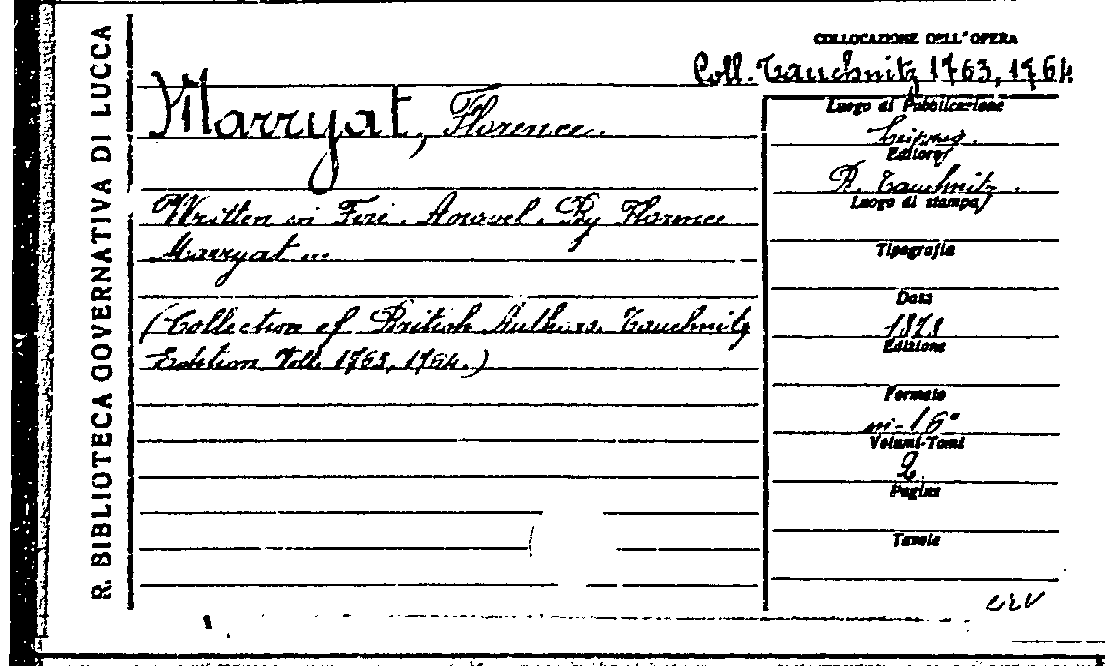 R. BIBLIOTECA GOVERNATIVA DI LUCCA
COLLOCAZIONE DELL'OPERA
Coll. Tauchnitz 1763, 1764
Marryat, Florence.
Written in Fire. A novel. By Florence
Marryat ...
(Collection of British Authors. Tauchnitz
Edition Voll. 1763, 1764.)
Luogo di Pubblicazione
Leipzig.
Editore
B. Tauchnitz.
Luogo di stampa
Tipografia
Data
1878
Edizione
Formato
in-16°
Volumi-Tomi
2
Pagine
Tavole